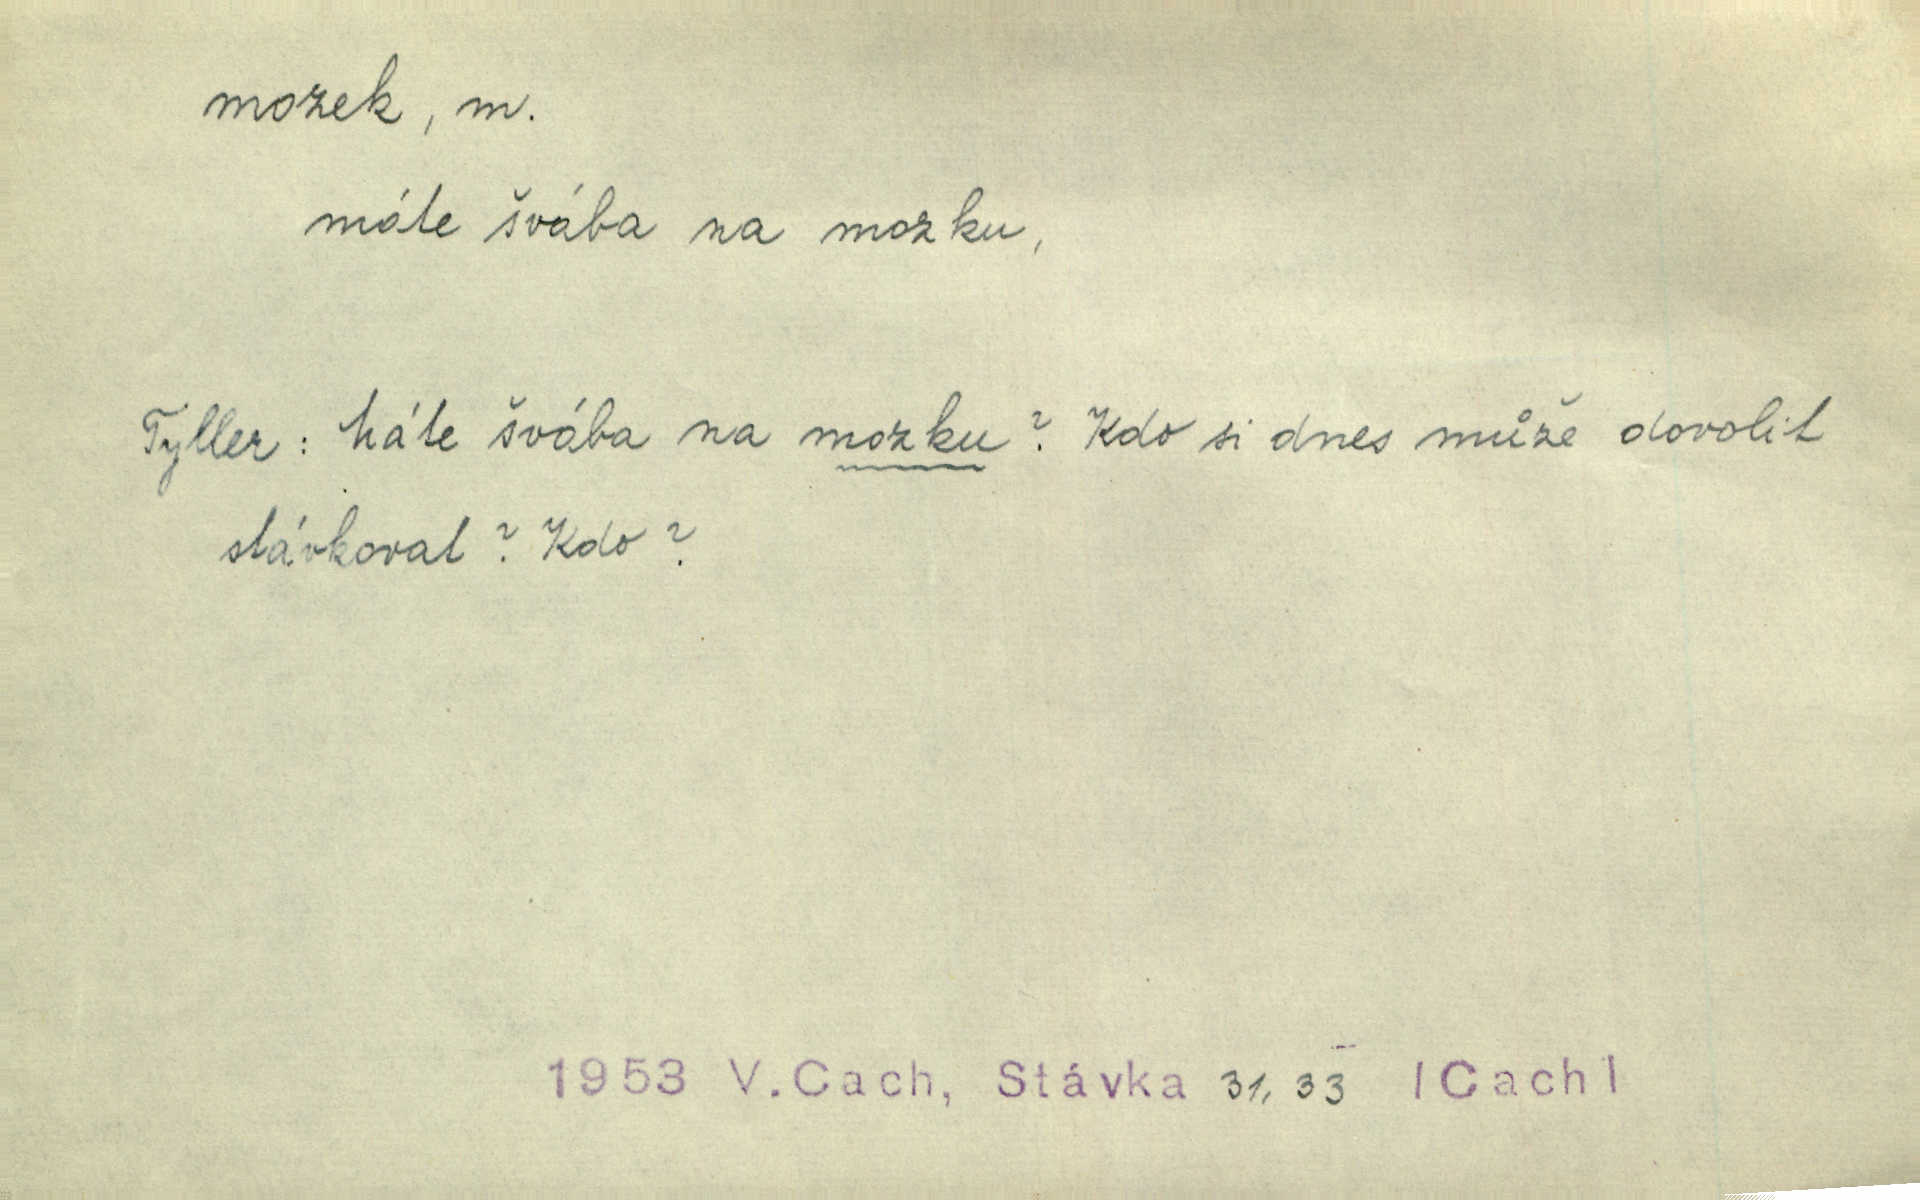 mozek, m.
máte švába na mozku,
Tyller: Máte švába na mozku? Kdo si dnes může dovolit
stávkovat? Kdo?
1953 V. Cach, Stávka 31, 33 |Cach|